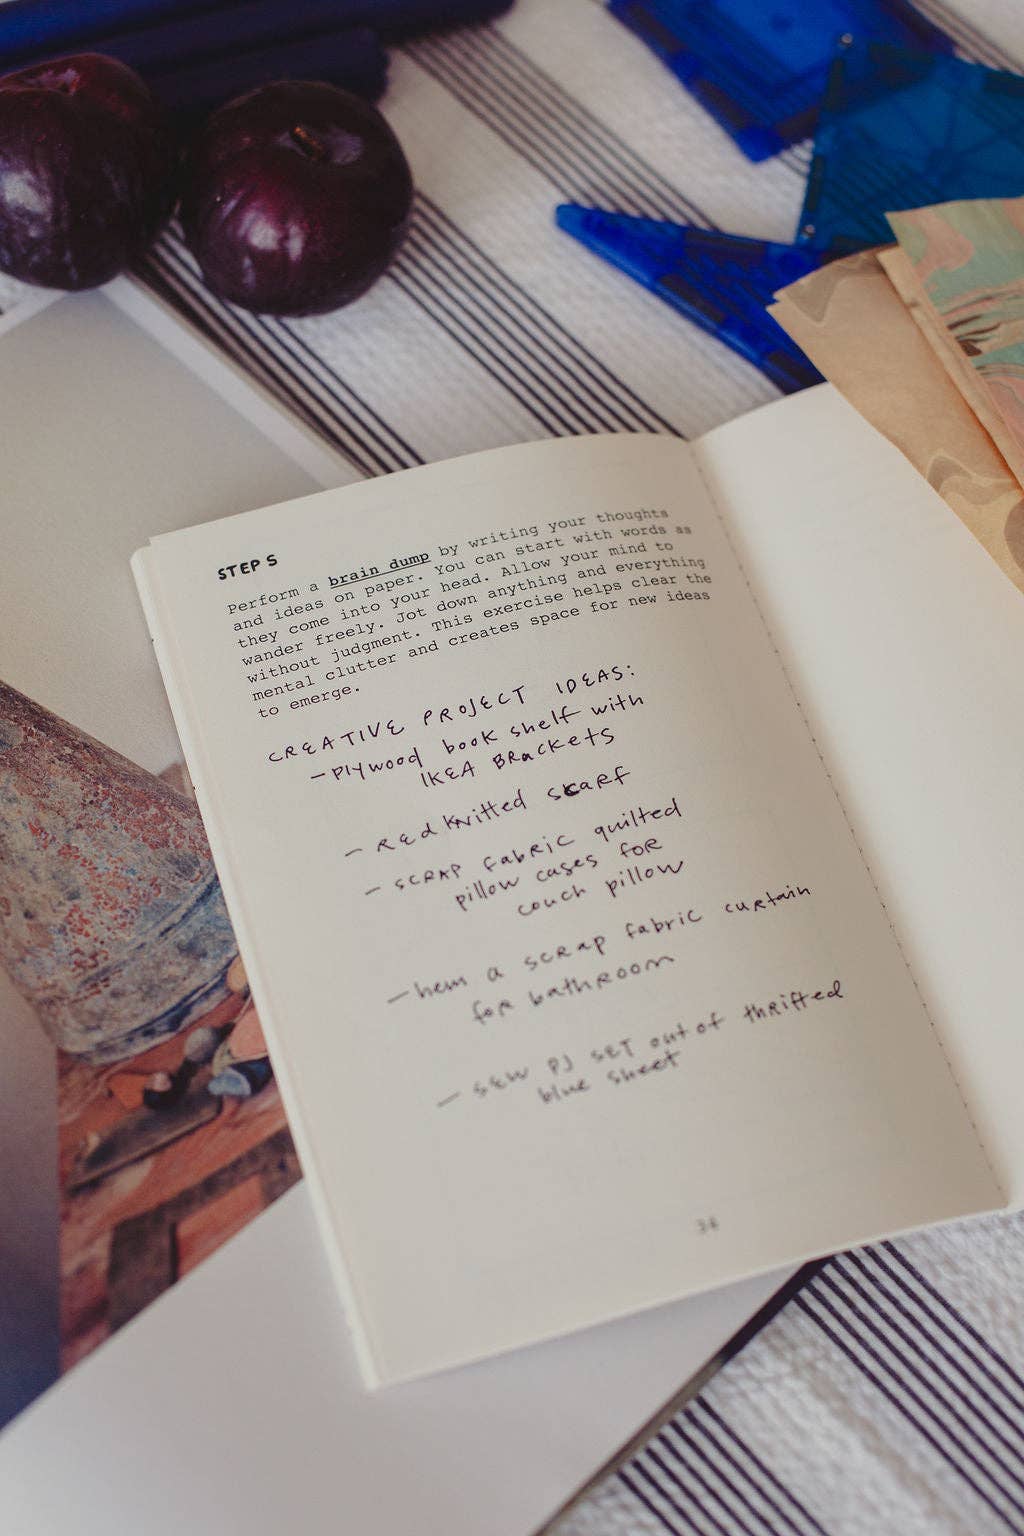 STEP 5
Perform a brain dump by writing your thoughts
and ideas on paper. You can start with words as
they come into your head. Allow your mind to
wander freely. Jot down anything and everything
without judgment. This exercise helps clear the
mental clutter and creates space for new ideas
to emerge.
CREATIVE PROJECT IDEAS:
- Plywood book shelf with
IKEA BRackets
- REd Knitted scarf
- SCRAP fabric quilted
pillow cases for
couch pillow
- hem a scrap fabric curtain
for bathroom
- sew PJ SET out of thrifted
blue sheet
36